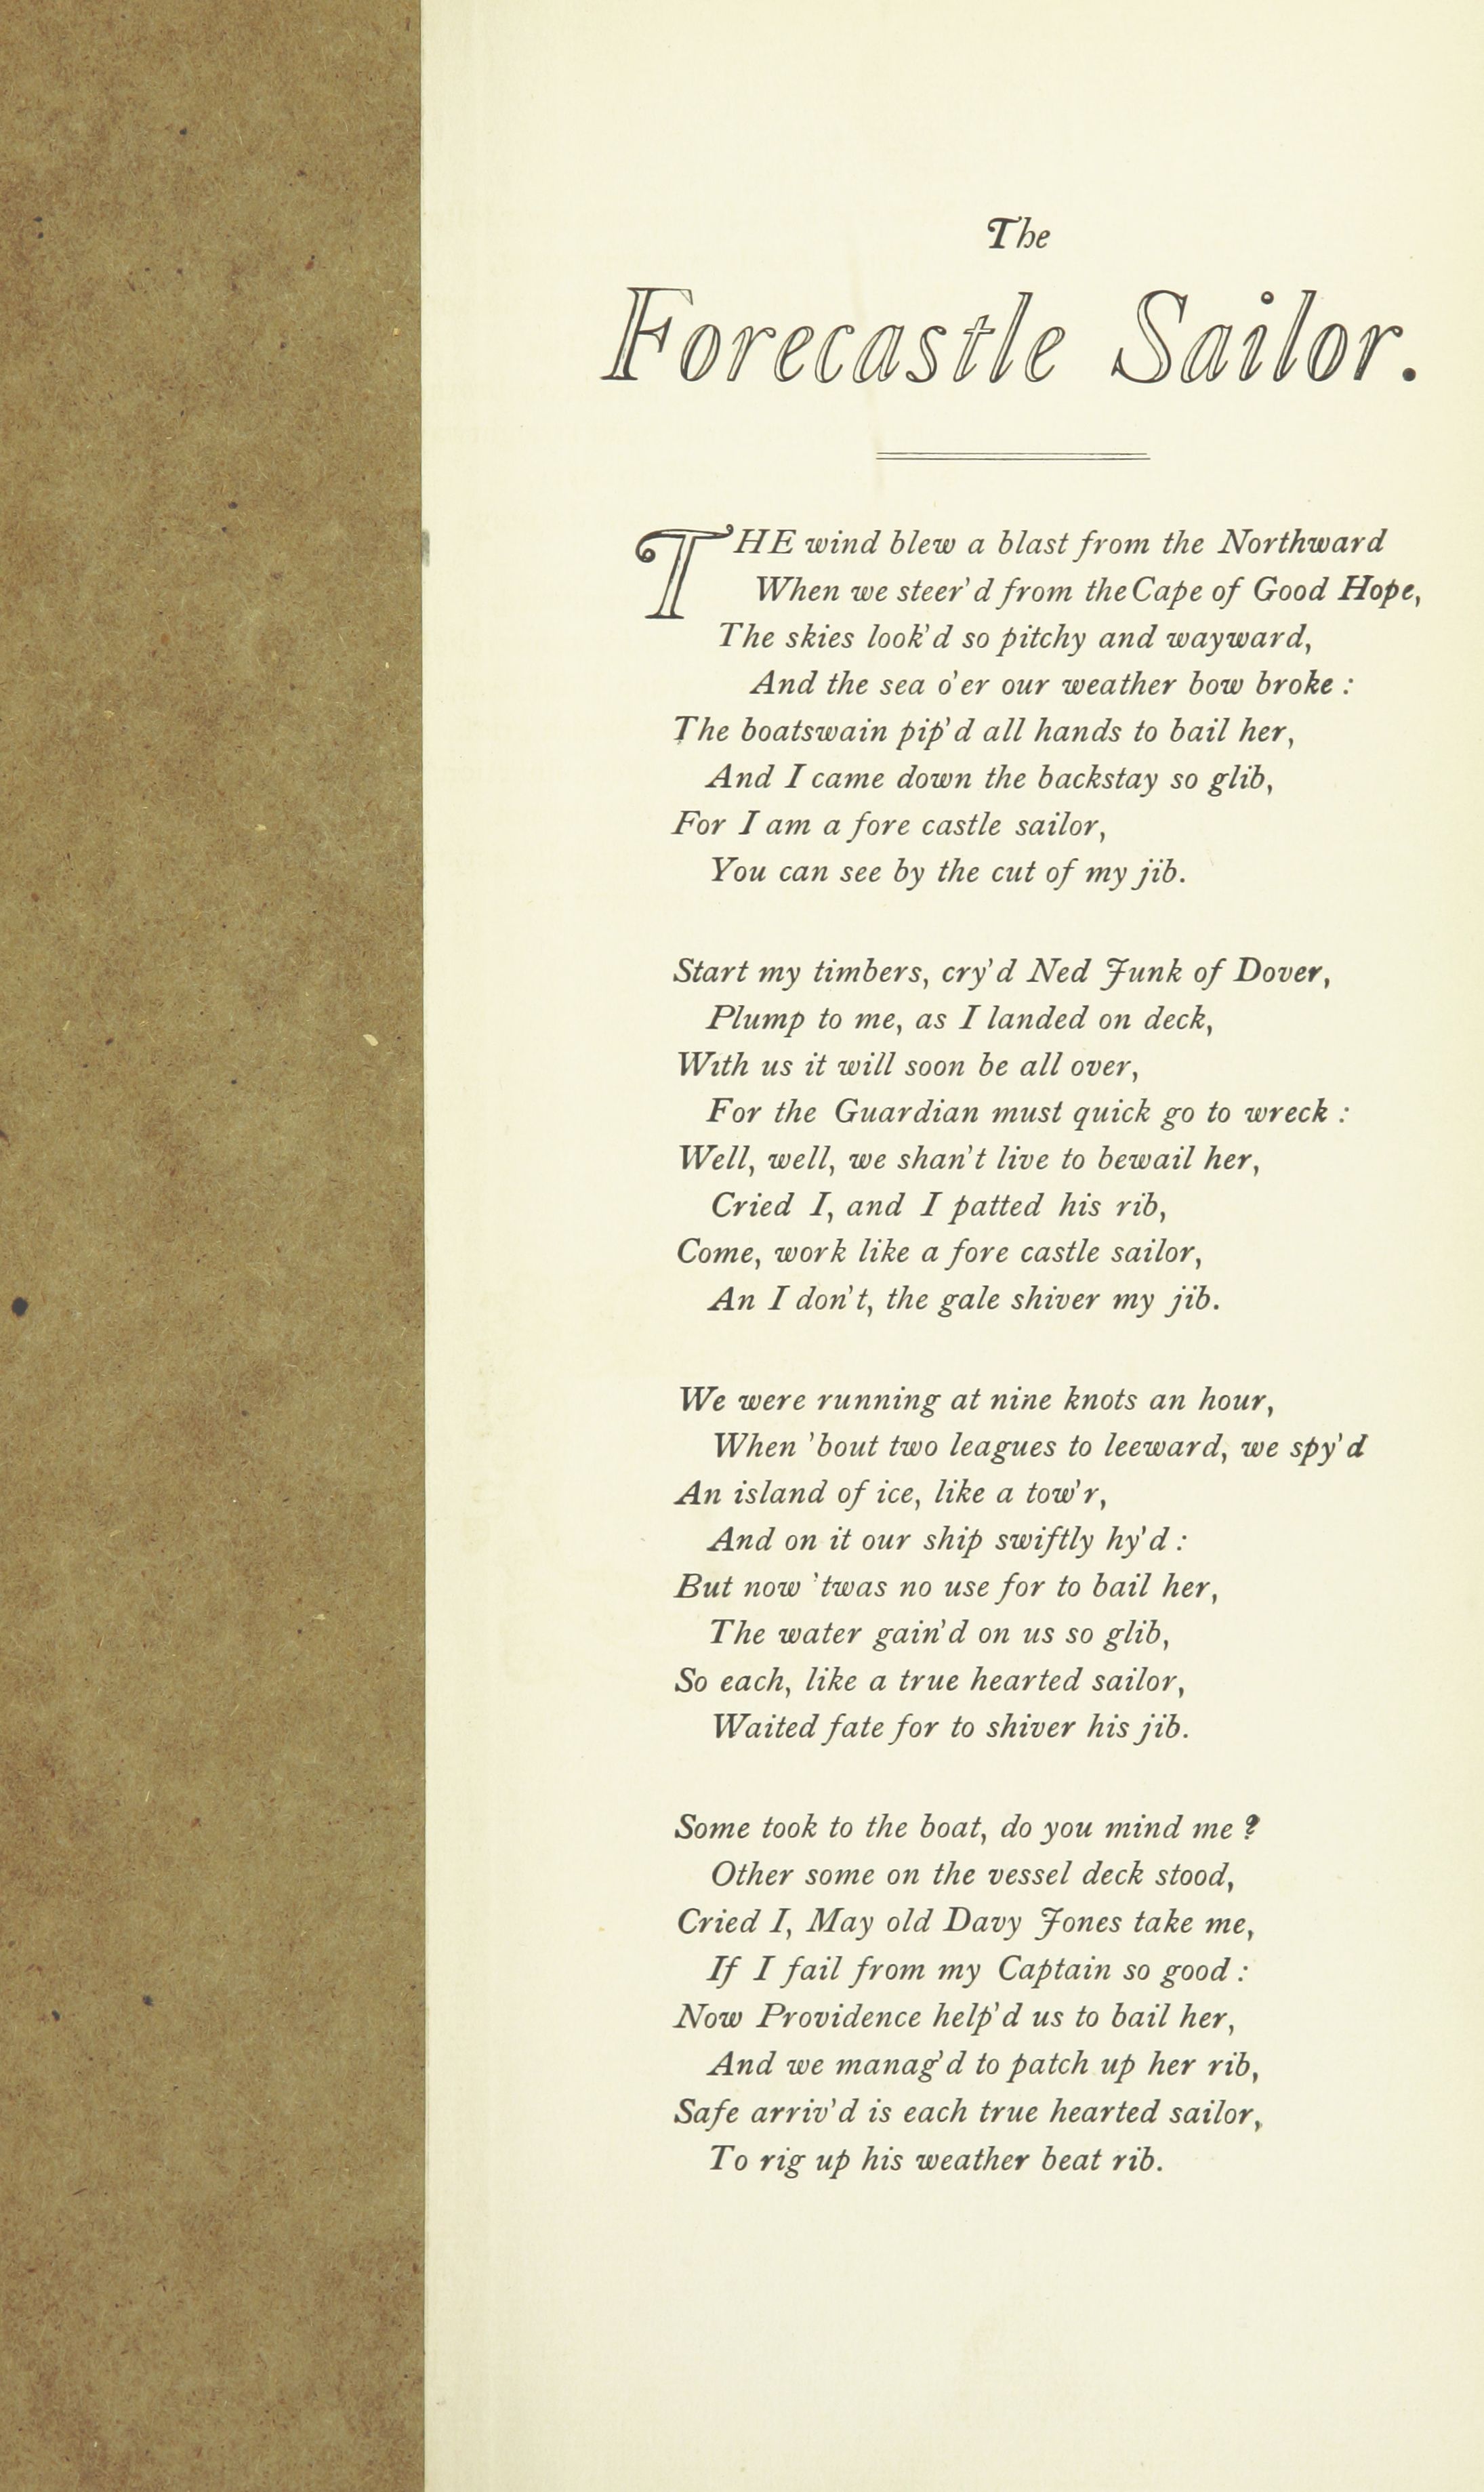 The
Forecastle Sailor.
THE wind blew a blast from the Northward
When we steer'd from the Cape of Good Hope,
The skies look'd so pitchy and wayward,
And the sea o'er our weather bow broke :
The boatswain pip'd all hands to bail her,
And I came down the backstay so glib,
For I am a fore castle sailor,
You can see by the cut of my jib.
Start my timbers, cry'd Ned Junk of Dover,
Plump to me, as I landed on deck,
With us it will soon be all over,
For the Guardian must quick go to wreck :
Well, well, we shan't live to bewail her,
Cried I, and I patted his rib,
Come, work like a fore castle sailor,
An I don't, the gale shiver my jib.
We were running at nine knots an hour,
When 'bout two leagues to leeward, we spy'd
An island of ice, like a tow'r,
And on it our ship swiftly hy'd :
But now 'twas no use for to bail her,
The water gain'd on us so glib,
So each, like a true hearted sailor,
Waited fate for to shiver his jib.
Some took to the boat, do you mind me ?
Other some on the vessel deck stood,
Cried I, May old Davy Jones take me,
If I fail from my Captain so good :
Now Providence help'd us to bail her,
And we manag'd to patch up her rib,
Safe arriv'd is each true hearted sailor,
To rig up his weather beat rib.